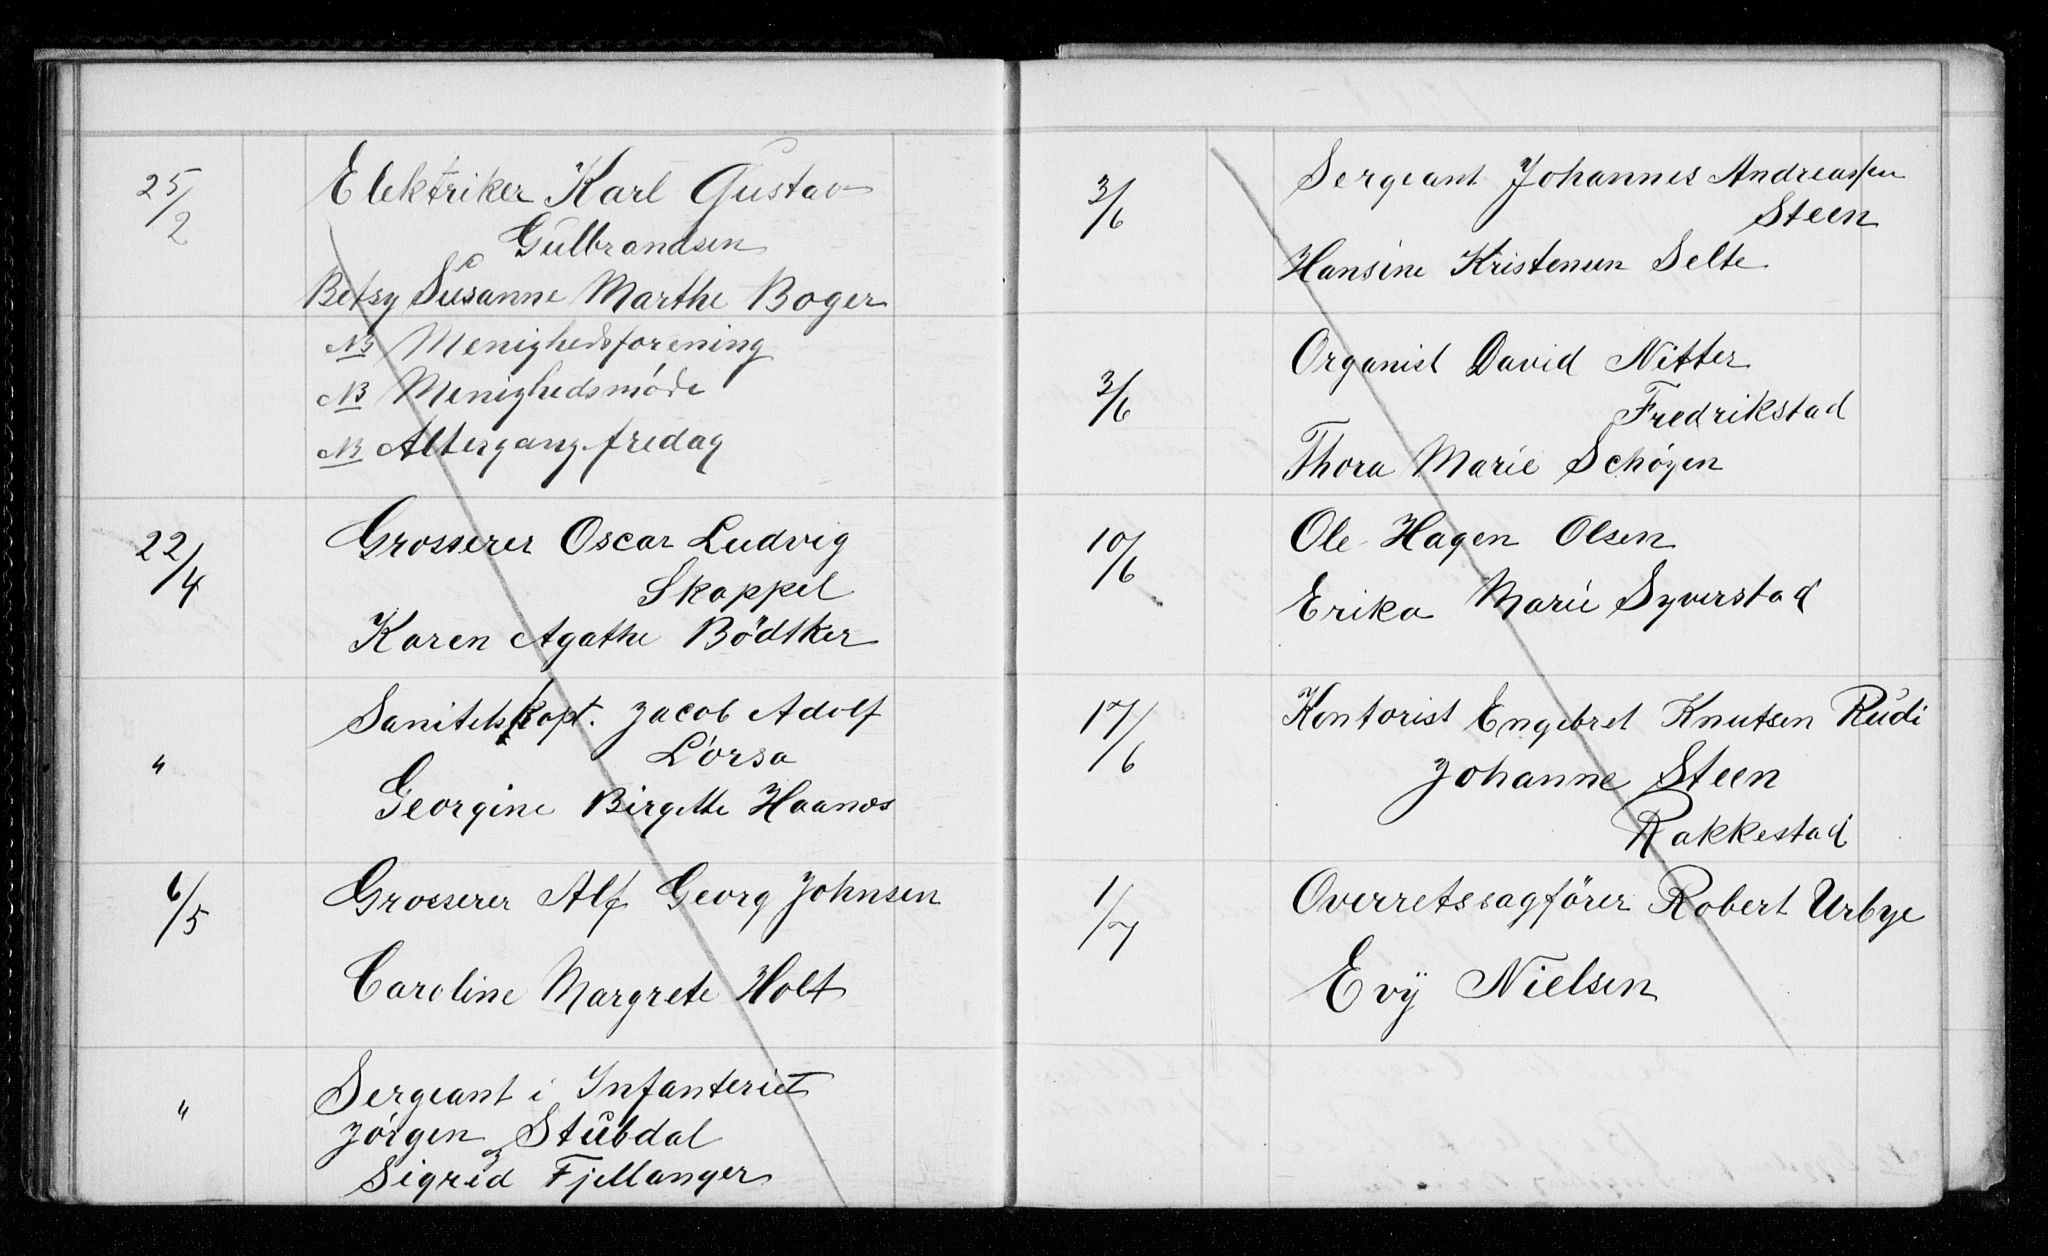 25/2
Elektriker Karl Gustav
Gulbrandsen
Betsy Susanne Marthe Boger
NB Menighedsforening
NB Menighedsmøde
NB Altergang fredag
22/4
Grosserer Oscar Ludvig
Skappel
Karen Agathe Bödtker
"
Sanitetskapt. Jacob Adolf
Lorsa
Georgine Birgitte Haanæs
6/5
Grosserer Alf Georg Johnsen
Caroline Margrete Holt
"
Sergeant i Infanteriet
Jörgen Stubdal
og
Sigrid Fjellanger
3/6
Sergeant Johannes Andreassen
Steen
Hansine Kristensen Selte
3/6
Organist David Nitter
Fredrikstad
Thora Marie Schøyen
10/6
Ole Hagen Olsen
Erika Marie Syverstad
17/6
Kontorist Engebret Knutsen Rudi
Johanne Steen
Rakkestad
1/7
Overretssagfører Robert Urbye
Evÿ Nielsen